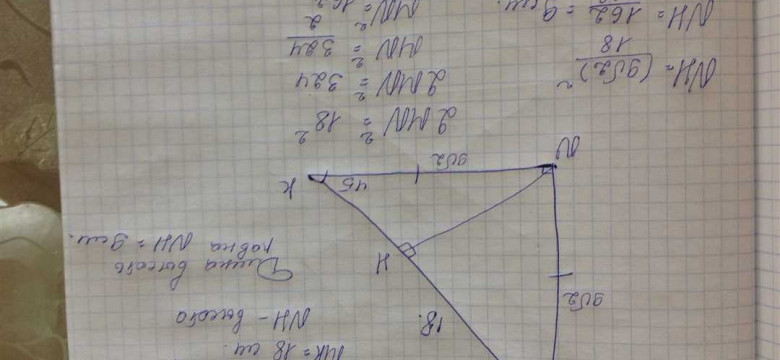 MK = 18 см.
NH - высота
Длина высоты
равна NH = 9 см.
18.
9√2
H
K
45
9√2
N
2MN² = 18²
2MN² = 324
MN² = 324/2
MN² = 162
NH = (9√2)²/18
NH = 162/18 = 9 см.